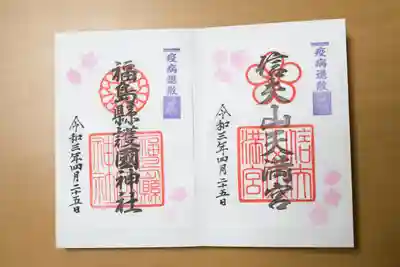 疫病退散
信夫山天満宮
令和三年四月二十五日
疫病退散
福島縣護國神社
令和三年四月二十五日